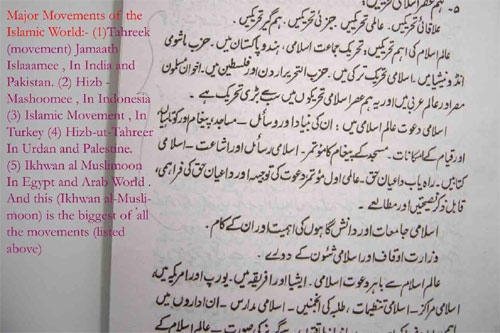 Major Movements of the
Islamic World:- (1)Tahreek
(movement) Jamaath
Islaaamee , In India and
Pakistan. (2) Hizb -
Mashoomee , In Indonesia
(3) Islamic Movement , In
Turkey (4) Hizb-ut-Tahreer
In Urdan and Palestine.
(5) Ikhwan al Muslimoon
In Egypt and Arab World .
And this (Ikhwan al-Musli-
moon) is the biggest of all
the movements (listed
above)
علاقائی تحریکیں۔ عالمی تحریکیں۔ جزئی تحریکیں۔ ہم گیر تحریکیں۔
عالم اسلام کی اہم تحریکیں: تحریک جماعت اسلامی، ہند و پاکستان میں۔ حزب ماشومی
انڈونیشیا میں۔ اسلامی تحریک ترکی میں۔ حزب التحریر اردن اور فلسطین میں۔ اخوان المسلمون
مصر اور عالم عربی میں اور یہ ہم عصر اسلامی تحریکوں میں سب سے بڑی تحریک ہے ۔
اسلامی دعوت عالم اسلامی میں: ان کی بنیاد اور وسائل ۔ مساجد، پیغام اور
اور قیام کے امکانات۔ مسجد کے پیغام کا مؤتمر۔ اسلامی رسائل اور اشاعت ۔ اسلامی
کتابیں۔ راہ یاب داعیان حق۔ عالمی اول مؤتمر دعوت کی توجیہ اور داعیان حق کی فراہمی،
قابل ذکر نصیحتیں اور مطالعے ۔
اسلامی جامعات اور دانش گاہوں کی اہمیت اور ان کے کام۔
وزارت اوقاف اور اسلامی شئون کے دورے ۔
عالم اسلام سے باہر دعوت اسلامی۔ ایشیا اور افریقہ میں۔ یورپ اور امریکہ میں،
اسلامی مراکز۔ اسلامی تنظیمات، طلبہ کی انجمنیں۔ اسلامی مدارس ۔ ان اداروں میں